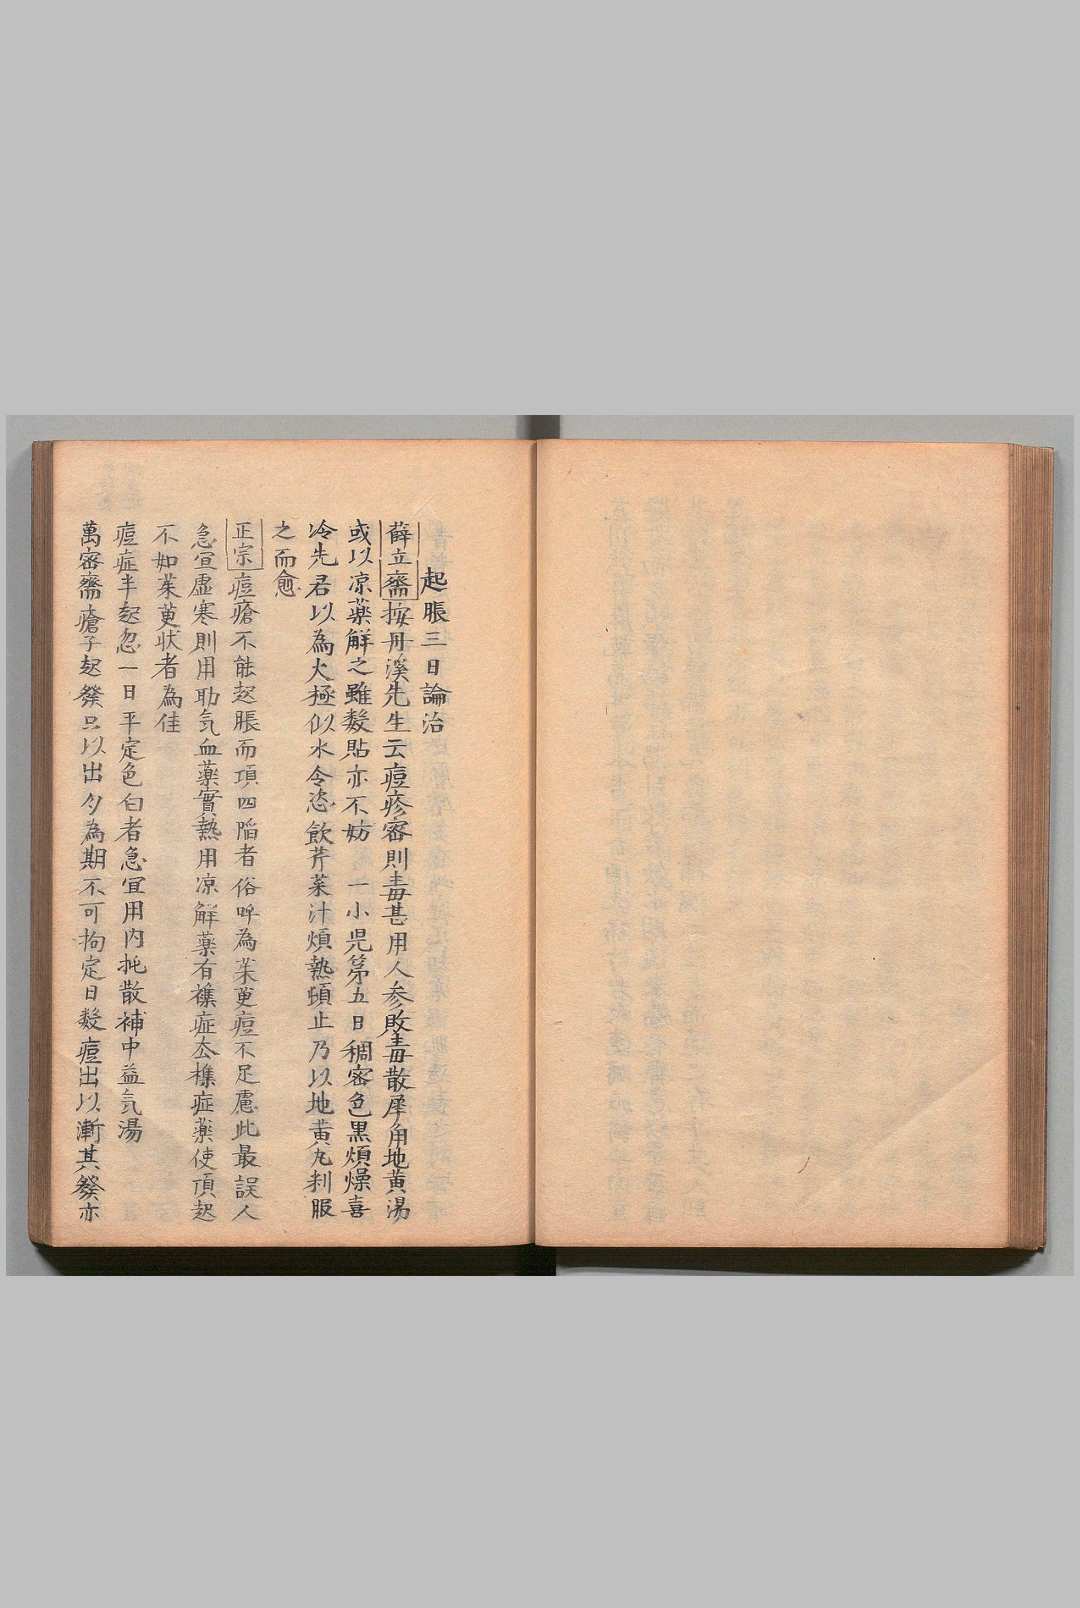 起脹三日論治
薛立齋按丹溪先生云痘疹密則毒甚用人参敗毒散犀角地黄湯
或以凉藥解之雖数貼亦不妨　一小児第五日稠密色黒煩燥喜
冷先君以為火極似水令恣飲芹菜汁煩熱頓止乃以地黄丸料服
之而愈
正宗痘瘡不能起脹而頂四陷者俗呼為茱萸痘不足慮此最誤人
急宜虚寒則用助気血藥實熱用凉解藥有襍症厺襍症藥使頂起
不如茱萸状者為佳
痘症半起忽一日平定色白者急宜用内托散補中益気湯
萬密齋瘡子起發只以出匀為期不可拘定日数痘出以漸其發亦